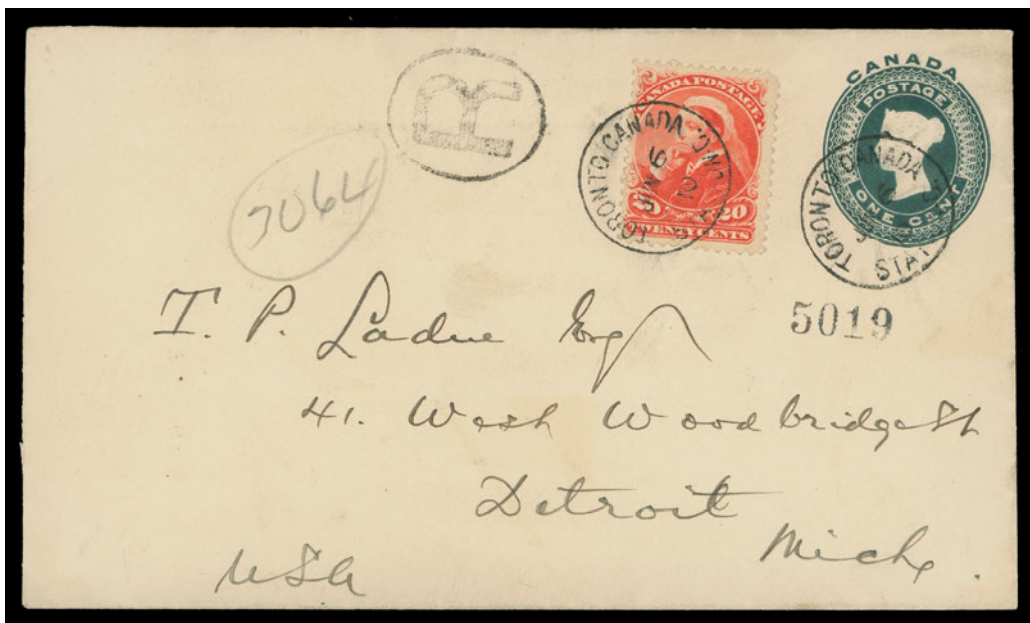 CANADA
POSTAGE
ONE CENT
CANADA POSTAGE
20 20
TWENTY CENTS
R
TORONTO CANADA
TORONTO CANADA
STA
7064
5019
T. P. Ladue Esq
41. West Woodbridge St
Detroit
Mich.
USA